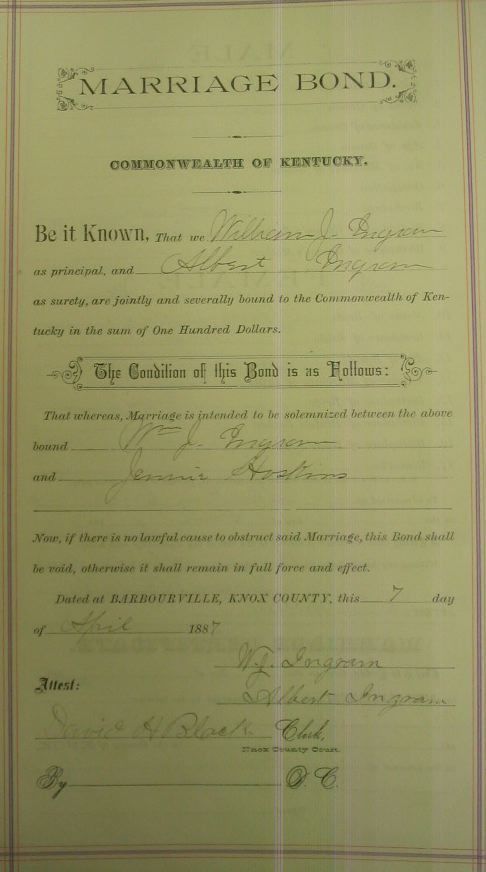 MARRIAGE BOND.
COMMONWEALTH OF KENTUCKY.
Be it Known, That we William J. Ingram
as principal, and Albert Ingram
as surety, are jointly and severally bound to the Commonwealth of Ken-
tucky in the sum of One Hundred Dollars.
The Condition of this Bond is as Follows:
That whereas, Marriage is intended to be solemnized between the above
bound Wm J. Ingram
and Jennie Hoskins
Now, if there is no lawful cause to obstruct said Marriage, this Bond shall
be void, otherwise it shall remain in full force and effect.
Dated at BARBOURVILLE, KNOX COUNTY, this 7 day
of April 1887
W. J. Ingram
Attest:
Albert Ingram
David H Black Clerk,
Knox County Court.
By D. C.